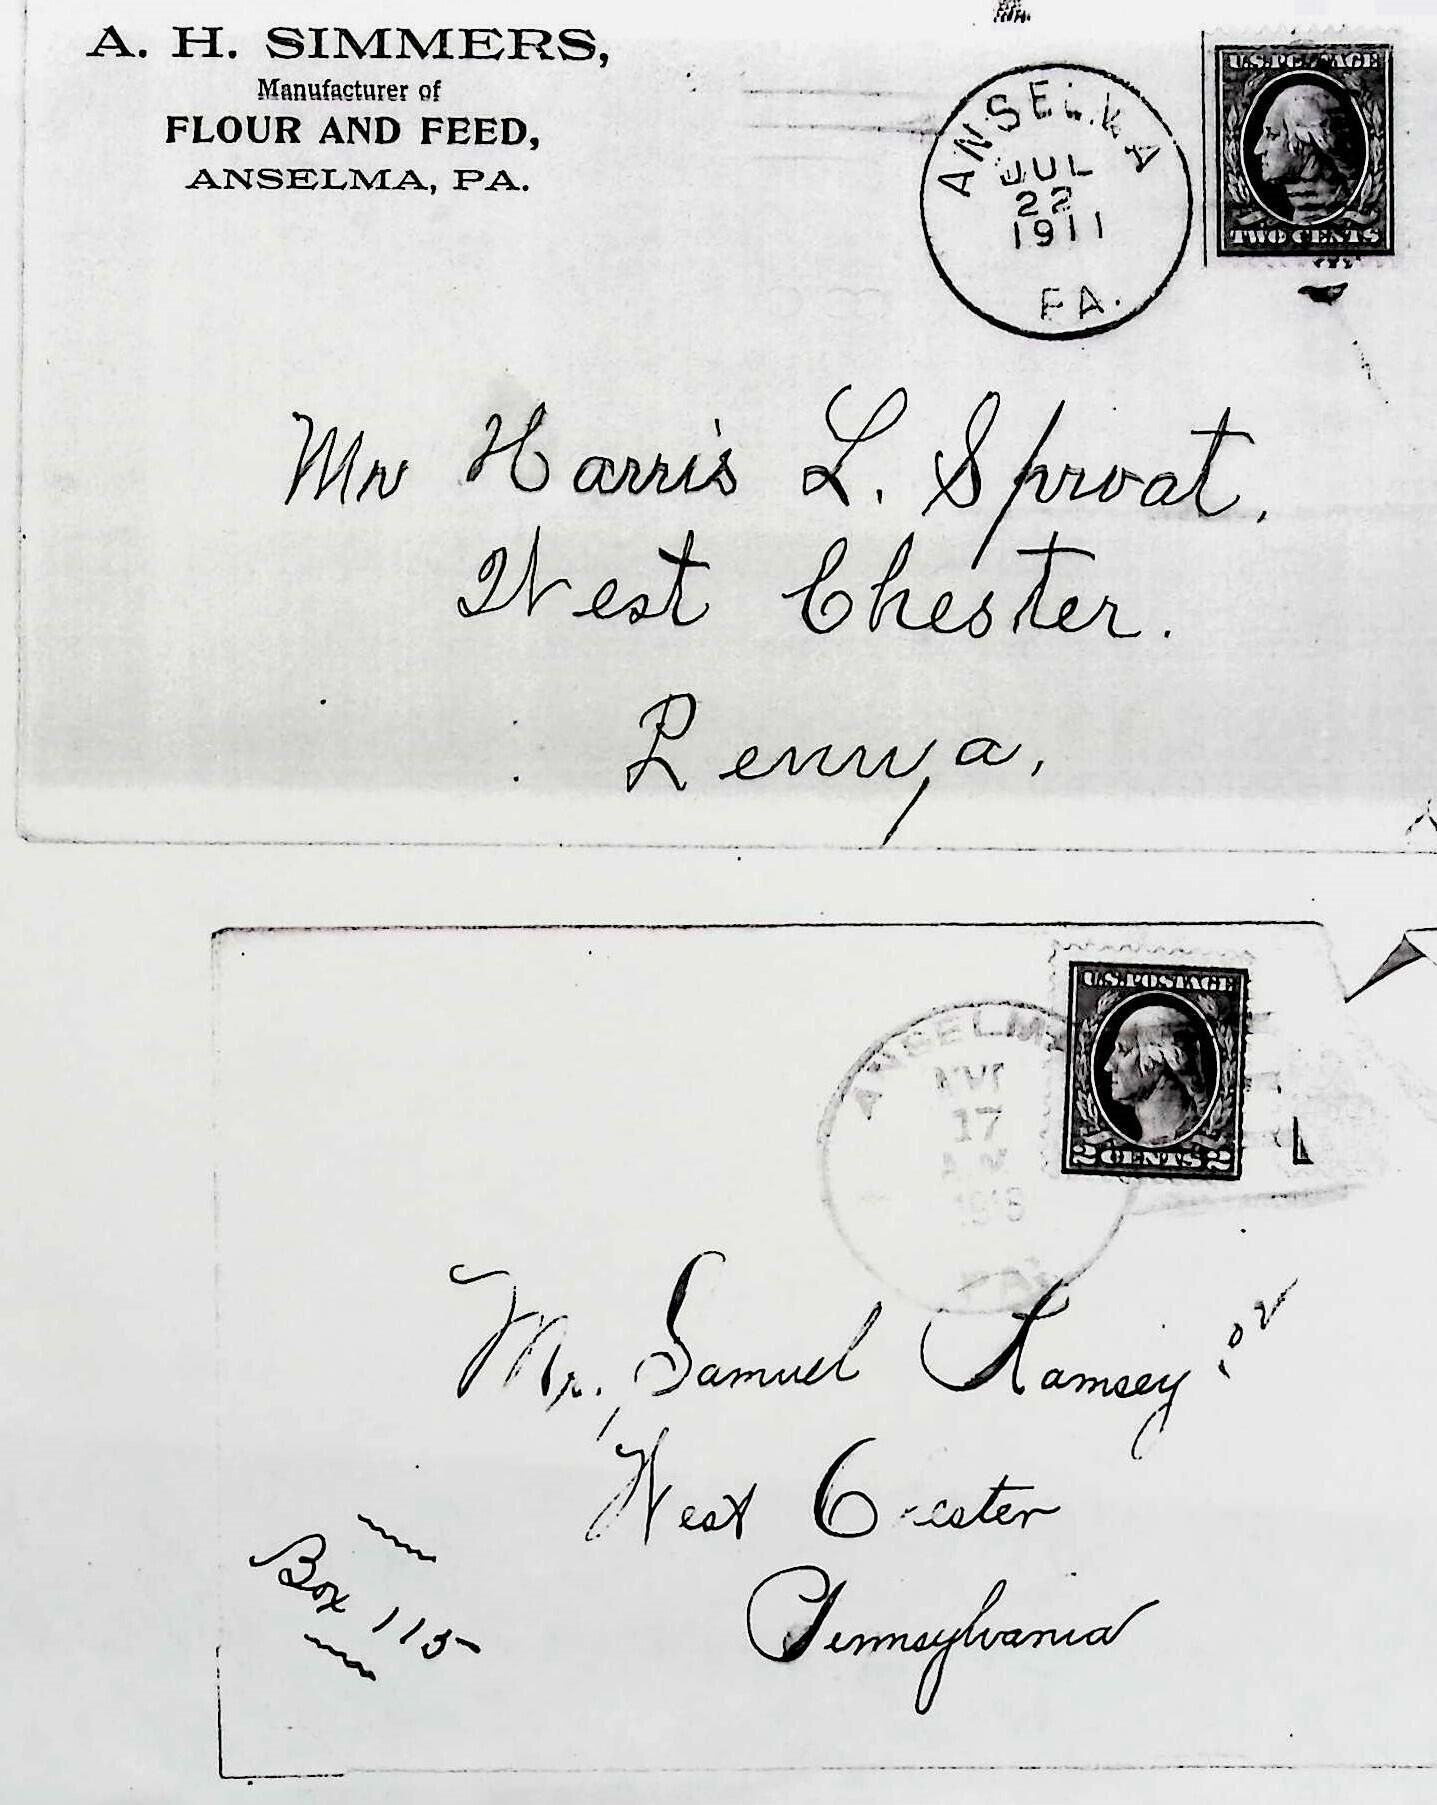 A. H. SIMMERS,
Manufacturer of
FLOUR AND FEED,
ANSELMA, PA.
ANSELMA
JUL
22
1911
PA.
U.S. POSTAGE
TWO CENTS
Mr Harris L. Sproat,
West Chester.
Penn,a,
ANSELMA
17
U.S. POSTAGE
2 CENTS 2
Mr. Samuel Ramsey
West Chester
Box 115
Pennsylvania